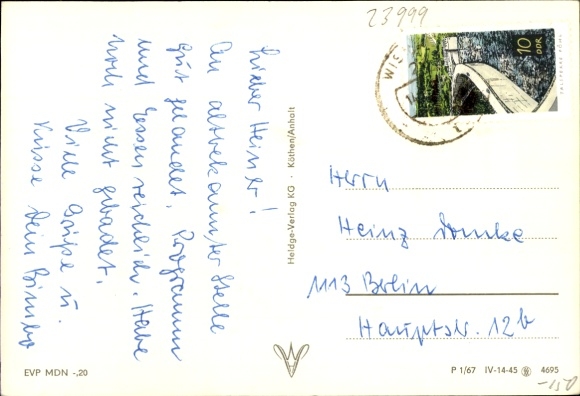 23999
Lieber Heiner!
An altbekannter Stelle
gut gelandet. Programm
und Essen reichlich. Habe
noch nicht gebadet.
Viele Grüße u.
Küsse Dein Bimbo
EVP MDN -,20
Heldge-Verlag KG · Köthen/Anhalt
10
DDR
WIE
Herrn
Heinz
1113 Berlin
Hauptstr. 12b
P 1/67 IV-14-45 4695
-150